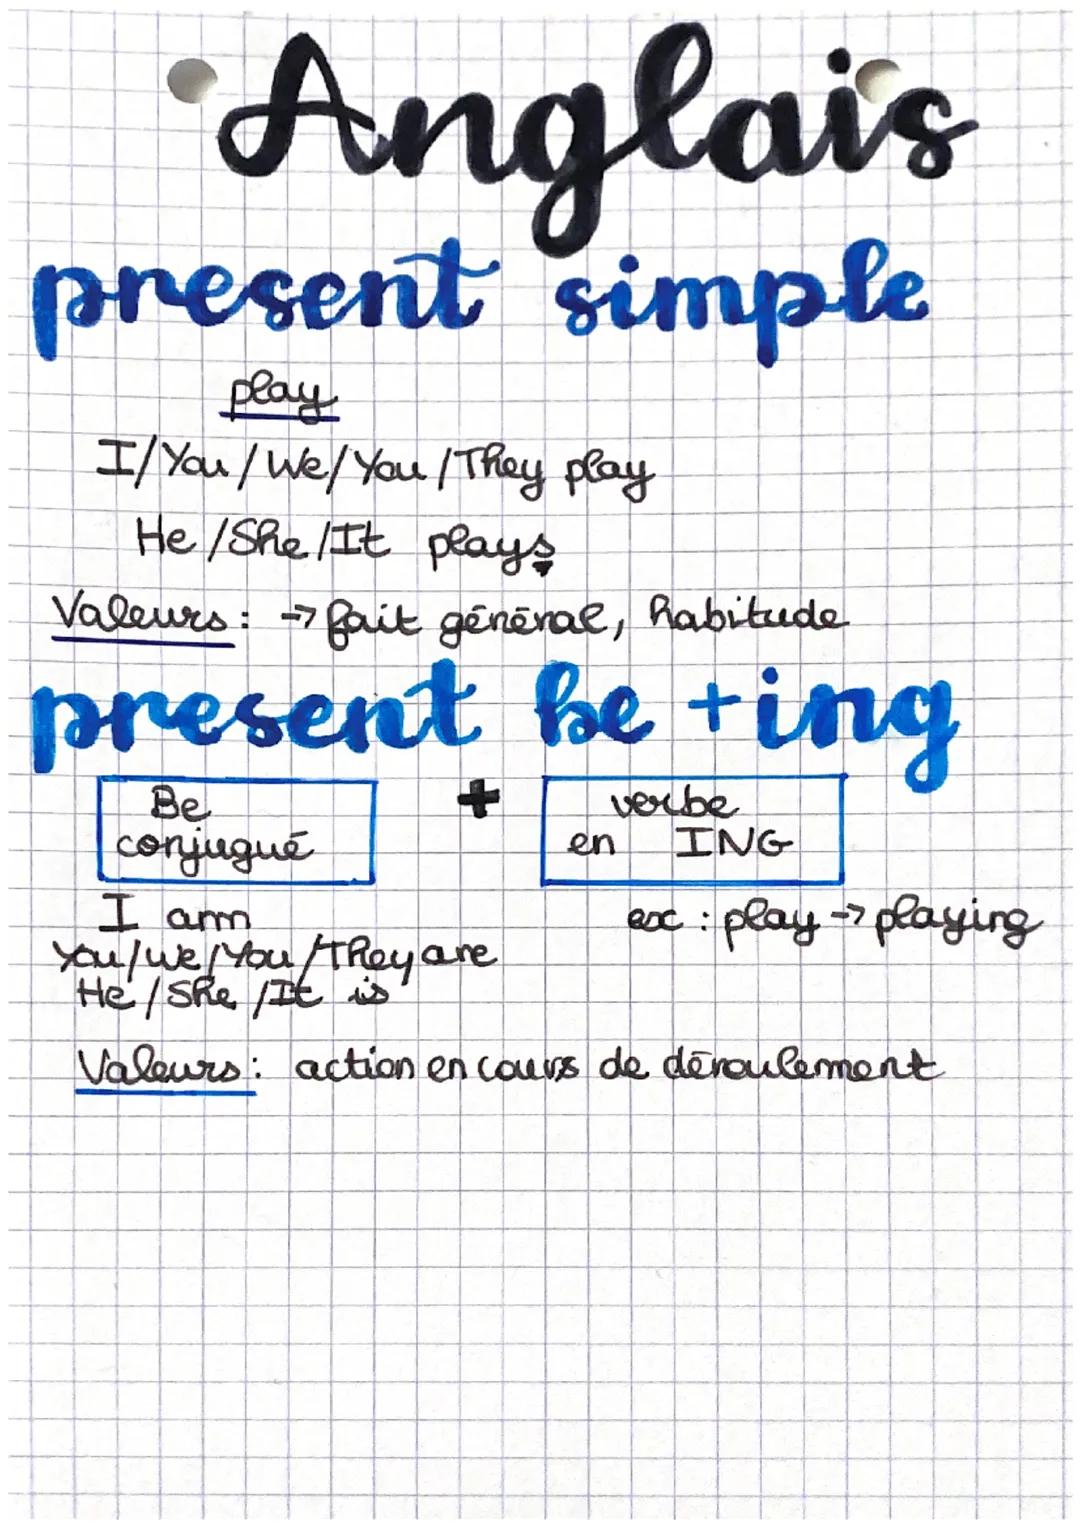 Anglais
present simple
play
I/You/We/You/They play
He/She/It plays
Valeurs: → fait général, habitude
present be +ing
Be + verbe
conjugué en ING
I am ex : play → playing
You/We/You/They are
He/She/It is
Valeurs: action en cours de déroulement